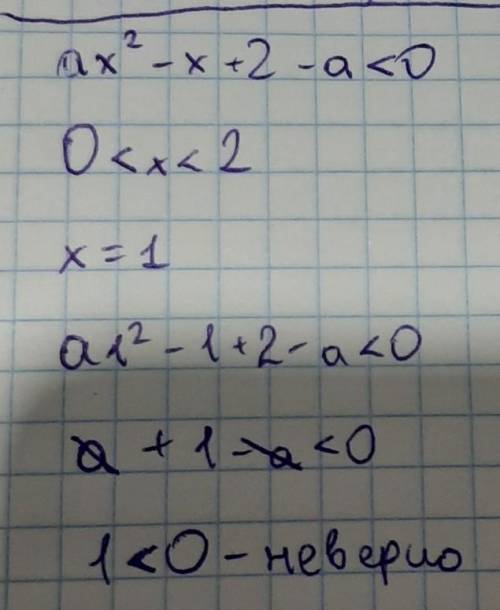 ax² - x + 2 - a < 0
0 < x < 2
x = 1
a1² - 1 + 2 - a < 0
a + 1 - a < 0
1 < 0 - неверно